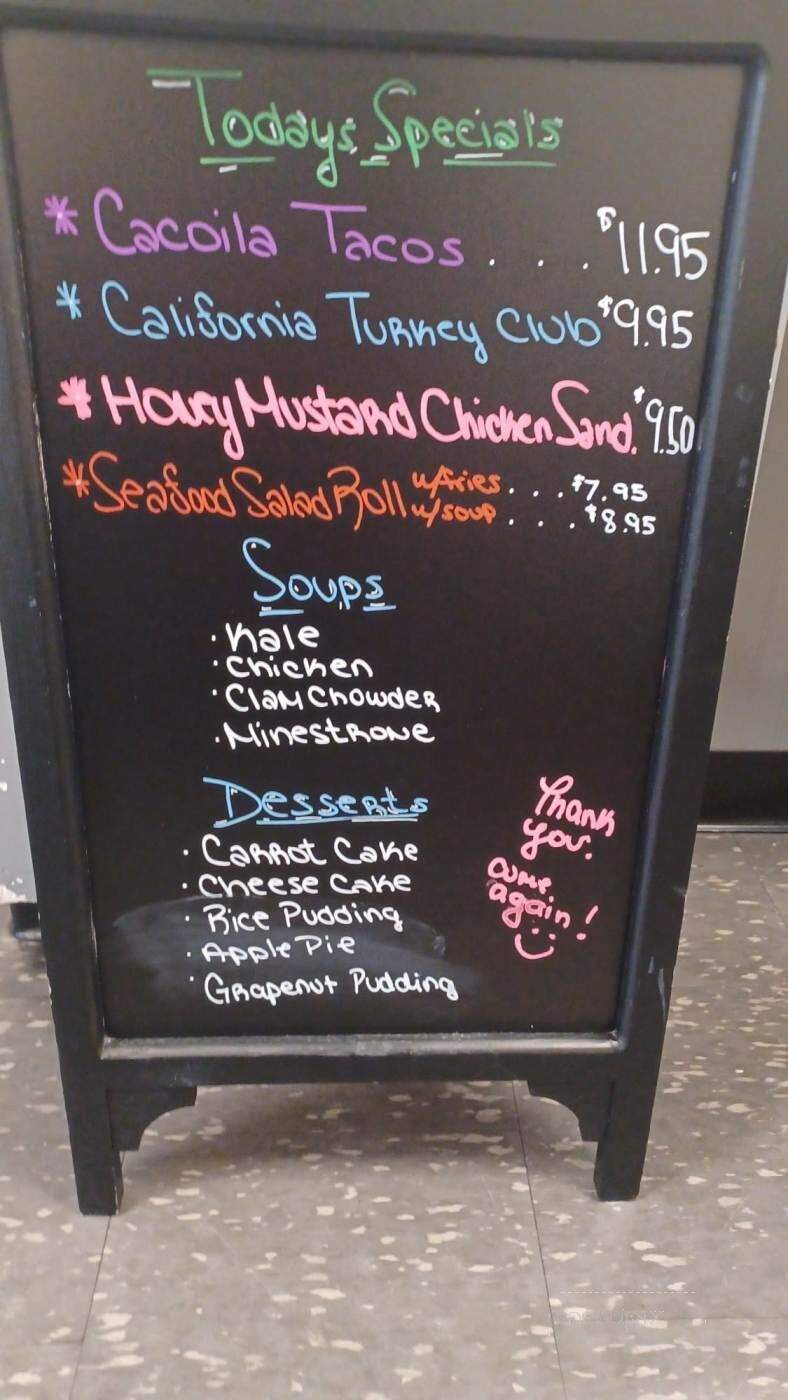 Todays Specials
* Cacoila Tacos . . . $11.95
* California Turkey Club $9.95
* Honey Mustard Chicken Sand. $9.50
* Seafood Salad Roll w/fries . . . $7.95
w/soup . . . $8.95
Soups
· Kale
· Chicken
· Clam Chowder
· Minestrone
Desserts
· Carrot Cake
· Cheese Cake
· Rice Pudding
· Apple Pie
· Grapenut Pudding
Thank
you.
come
again!